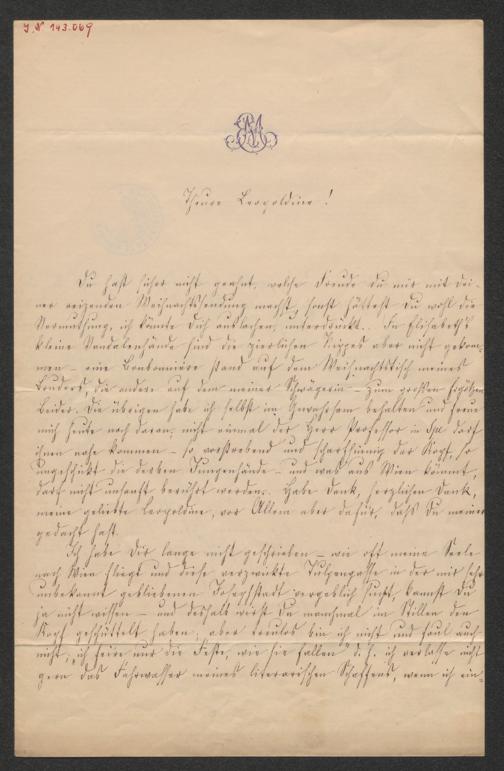 J. N 143.069
Theure Leopoldine!
Du hast sicher nicht geahnt, welche Freude du mir mit dei-
ner reizenden Weihnachtssendung machst, sonst hättest Du wohl die
Vermuthung, ich könnte Dich auslachen, unterdrückt. In Elisabeth's
kleine Vandalenhände sind die zierlichen Nippes aber nicht gekom-
men – eine Bonbonniere stand auf dem Weihnachtstisch meines
Bruders, die andere auf dem meiner Schwägerin – zum großen
Beider. Die übrigen habe ich selbst im behalten und freue
mich heute noch daran, nicht einmal der Herr Professor in darf
ihnen nahe kommen – so und scharfsinnig der Kopf, so
ungeschickt die derben Jungenhände – und was aus Wien kömmt,
darf nicht unsanft berührt werden. Habe Dank, herzlichen Dank,
meine geliebte Leopoldine, vor Allem aber dafür, daß Du meiner
gedacht hast.
Ich habe Dir lange nicht geschrieben – wie oft meine Seele
nach Wien fliegt und diese verzwickte Tulpengasse in der mir sehr
unbekannt gebliebenen Josephstadt vergeblich sucht, kannst Du
ja nicht wissen – und deshalb wirst Du manchmal im Stillen den
Kopf geschüttelt haben, aber treulos bin ich nicht und faul auch
nicht, ich feire nur die Feste, wie sie fallen" d. h. ich verlasse nicht
gern das Fahrwasser meines literarischen Schaffens, wenn ich ein-